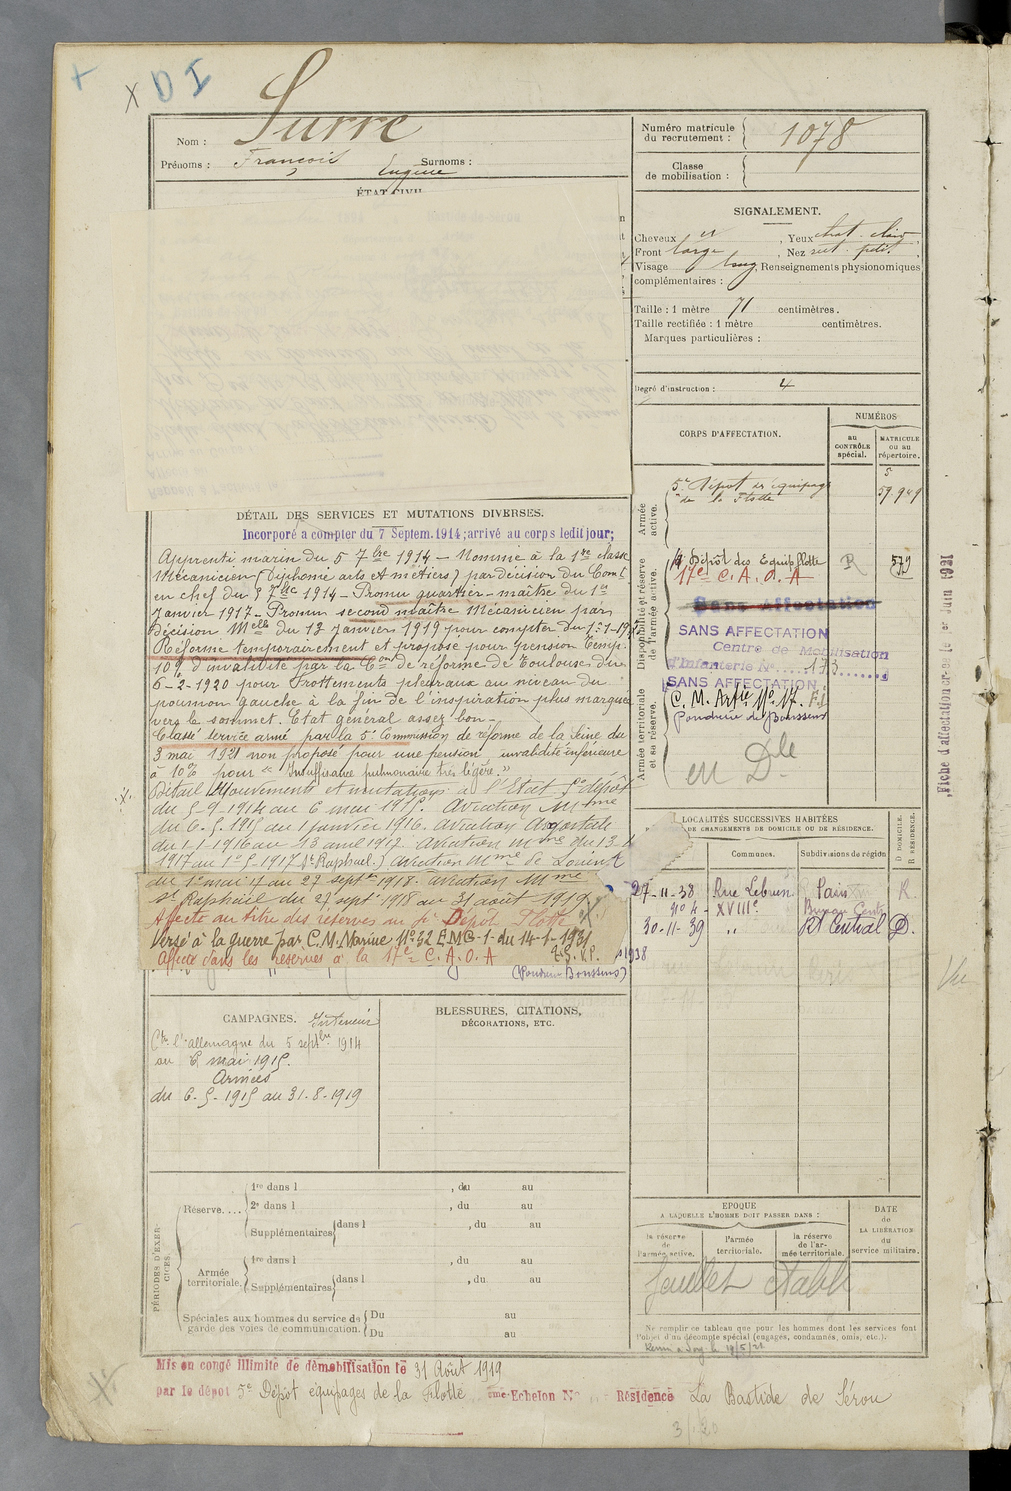 X D I
Nom : Surre
Prénoms : François Eugène Surnoms :
ÉTAT CIVIL
Numéro matricule
du recrutement : 1078
Classe
de mobilisation :
SIGNALEMENT.
Cheveux , Yeux chat. clair
Front large , Nez rect. petit.
Visage long, Renseignements physionomiques
complémentaires :
Taille : 1 mètre 71 centimètres.
Taille rectifiée : 1 mètre centimètres.
Marques particulières :
Degré d'instruction : 4
CORPS D'AFFECTATION.
NUMÉROS
au
CONTRÔLE
spécial.
MATRICULE
ou au
répertoire.
Armée
active.
5e Dépôt des équipages
de la Flotte
5
59 949
Disponibilité et réserve
de l'armée active.
Dépôt des Equip. Flotte R 579
17e C. A. O. A
Sans Affectation
SANS AFFECTATION
Centre de Mobilisation
d'Infanterie No 173
Armée territoriale
et sa réserve.
SANS AFFECTATION
C. M. Artie No 17.
Poudrerie de Boussens
en Dle
DÉTAIL DES SERVICES ET MUTATIONS DIVERSES.
Incorporé a compter du 7 Septem. 1914; arrivé au corps ledit jour;
Apprenti marin du 5 7bre 1914 — Nommé à la 1re classe
Mécanicien (Diplomé arts et métiers) par décision du Comt
en chef du 8 7bre 1914 — Promu quartier-maitre du 1er
Janvier 1917 — Promu second maître Mécanicien par
Décision Melle du 13 Janvier 1919 pour compter du 1-1-19
Réformé temporairement et proposé pour pension temp.
10% d'invalidité par la Con de réforme de Toulouse du
6-2-1920 pour Frottements pleuraux au niveau du
poumon gauche à la fin de l'inspiration plus marqués
vers le sommet. Etat général assez bon —
Classé service armé par la 5e Commission de réforme de la Seine du
3 mai 1921 non proposé pour une pension invalidité inférieure
à 10% pour "Insuffisance pulmonaire très légère."
Détail Mouvements et mutations à l'Etat 5e dépôt
du 5-9-1914 au 6 mai 1915. Aviation Mme
du 6.5.1915 au 1 janvier 1916. Aviation
du 1-1-1916 au 13 avril 1917. Aviation Mme du 13.4
1917 au 1er-5-1917 (St Raphael.) Aviation Mme de
du 1er mai 17 au 27 septre 1918. Aviation Mme
St Raphaël du 27 sept 1918 au 31 août 1919.
Affecté au titre des réserves au Dépot Flotte
Versé à la guerre par C.M. Marine No 32 E.M.G-1- du 14-1-1931
Affecté dans les réserves à la 17e C. A. O. A
(Poudrerie Boussens)
LOCALITÉS SUCCESSIVES HABITÉES
DE CHANGEMENTS DE DOMICILE OU DE RÉSIDENCE.
Communes.
Subdivisions de région
D DOMICILE.
R RÉSIDENCE.
27-11-38 Rue Lebrun Paris R
no 4 - XVIIIe Bureau Centr
30-11-39 " Rt Central D.
1938
CAMPAGNES. Intérieur
Ctre l'allemagne du 5 septbre 1914
au 6 mai 1915.
Armées
du 6-5-1915 au 31-8-1919
BLESSURES, CITATIONS,
DÉCORATIONS, ETC.
PÉRIODES D'EXERCICES.
Réserve....
1re dans l , du au
2e dans l , du au
Supplémentaires dans l , du au
Armée
territoriale.
1re dans l , du au
Supplémentaires dans l , du au
Spéciales aux hommes du service de
garde des voies de communication.
Du au
Du au
EPOQUE
A LAQUELLE L'HOMME DOIT PASSER DANS :
la réserve
de
l'armée active.
l'armée
territoriale.
la réserve
de l'ar-
mée territoriale.
DATE
de
LA LIBÉRATION
du
service militaire.
feuillet établi
Ne remplir ce tableau que pour les hommes dont les services font
l'objet d'un décompte spécial (engagés, condamnés, omis, etc.).
Mis en congé illimité de démobilisation le 31 Août 1919
par le dépot 5e Dépôt équipages de la Flotte eme Echelon No Résidence La Bastide de Sérou
Fiche d'affectation créée le 1er Juin 1921